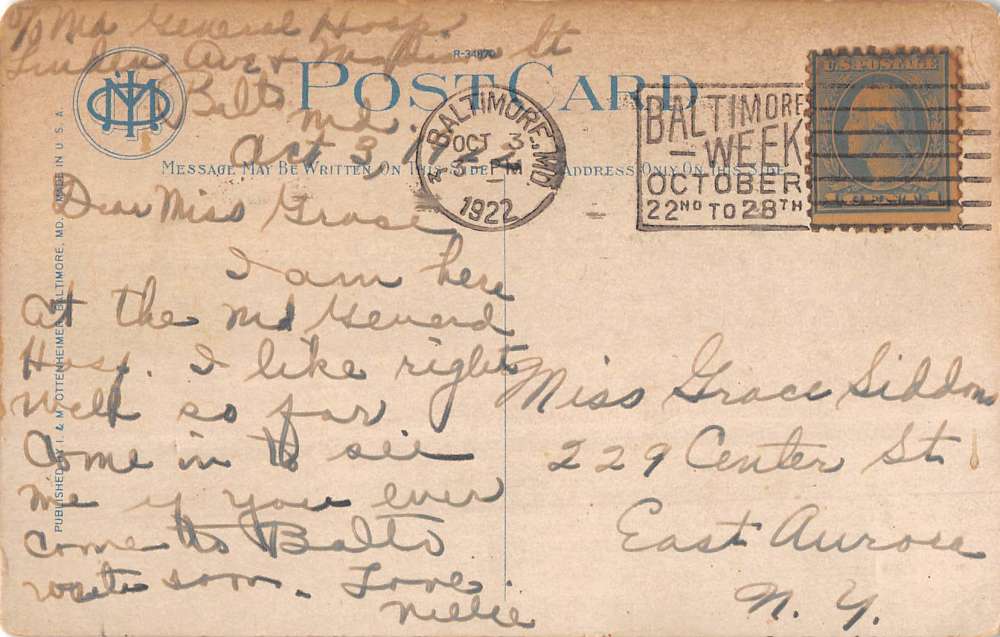 c/o Md General Hosp.
Linden Ave & Madison St
Balto
Md.
Oct 3,
R-34870
POST CARD
MESSAGE MAY BE WRITTEN ON THIS SIDE
ADDRESS ONLY ON THIS SIDE
BALTIMORE, MD.
OCT 3
3 - PM
1922
BALTIMORE
- WEEK
OCTOBER
22ND TO 28TH
U.S. POSTAGE
PUBLISHED BY I. & M. OTTENHEIMER, BALTIMORE, MD. MADE IN U. S. A.
Dear Miss Grace
I am here
at the Md General
Hosp. I like right
well so far
Come in to see
me if you ever
come to Balto
write soon. Love.
Nellie
Miss Grace Siddons
229 Center St
East Aurora
N. Y.